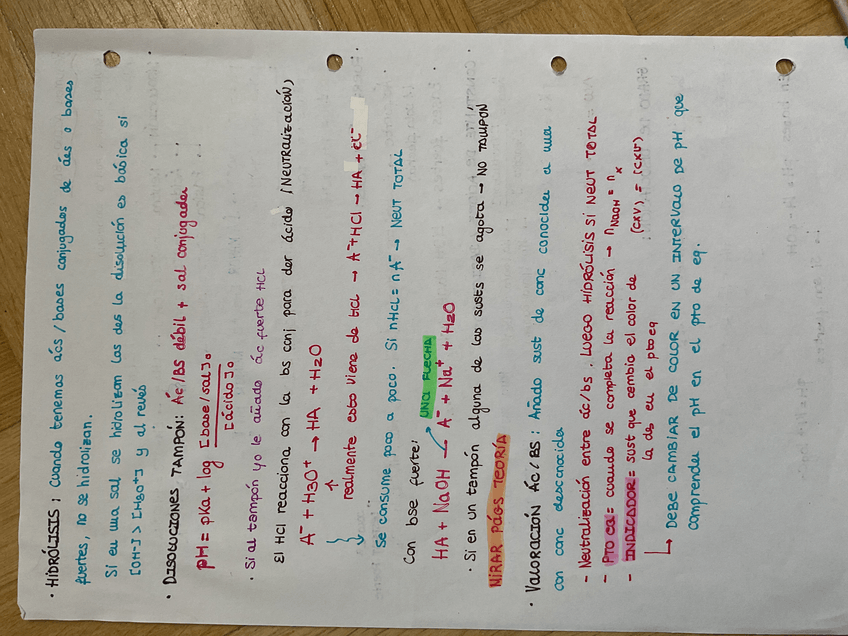 · HIDRÓLISIS : Cuando tenemos ács / bases conjugados de ács o bases
fuertes, no se hidrolizan.
Si en una sal se hidrolizan las dos la disolución es básica si
[OH-] > [H3O+] y al revés
· DISOLUCIONES TAMPÓN: Ác/BS débil + sal conjugados
pH = pKa + log [base/sal]o
[ácido]o
· Si al tampón yo le añado ác fuerte HCl
El HCl reacciona con la bs conj para dar ácido (NEUTRALIZACIÓN)
A- + H3O+ → HA + H2O
↑
realmente esto viene de HCl → A- + HCl → HA + Cl-
Se consume poco a poco. Si nHCl = nA- → NEUT TOTAL
Con bse fuerte: UNA FLECHA
HA + NaOH → A- + Na+ + H2O
· Si en un tampón alguna de las susts se agota → NO TAMPÓN
MIRAR PÁGS TEORÍA
· VALORACIÓN ÁC/BS : Añado sust de conc conocida a una
con conc desconocida
- Neutralización entre ác/bs. Luego HIDRÓLISIS SI NEUT TOTAL
- PTO EQ = cuando se completa la reacción → nNaOH = nx
- INDICADOR = sust que cambia el color de (CxV) = (CxV)
la ds en el pto eq
↳ DEBE CAMBIAR DE COLOR EN UN INTERVALO DE pH que
comprender el pH en el pto de eq.